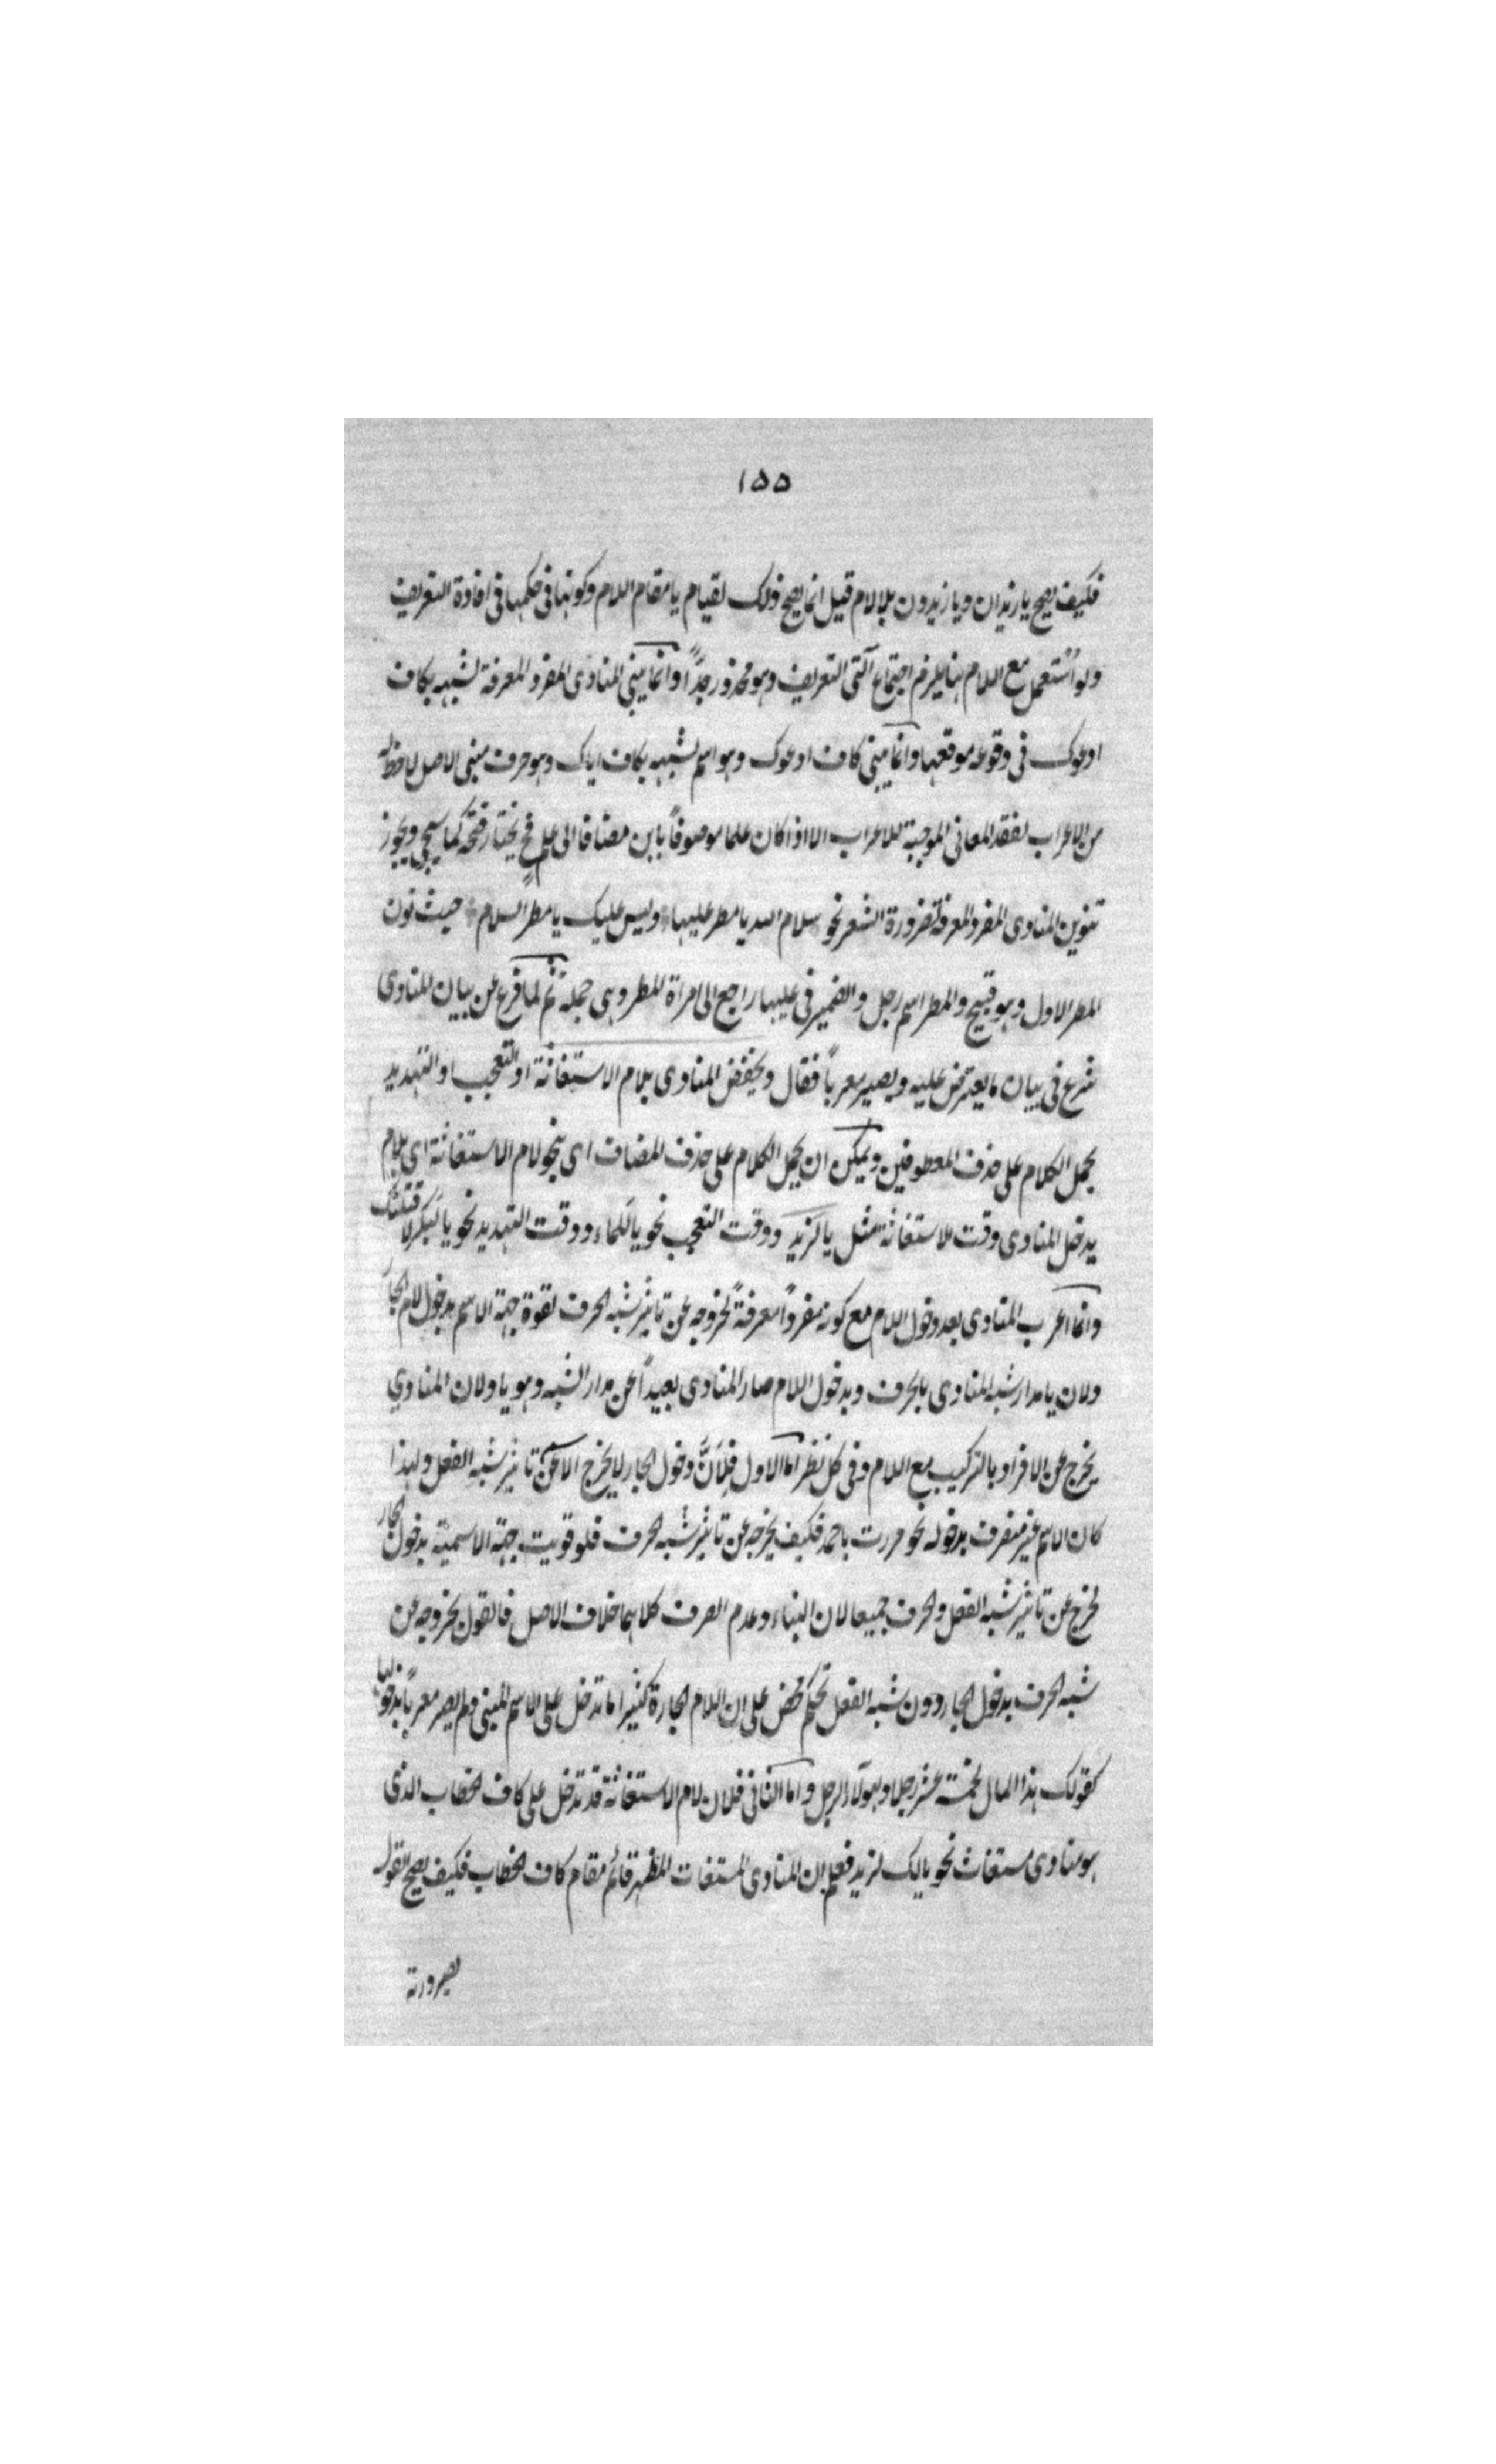 ١٥٥
فكيف يصح يا زيدان ويا زيدون بلا لام قيل انما يصح ذلك لقيام يا مقام اللام وكونها فى حكمها فى افادة التعريف
ولو استعمل مع اللام هنا يلزم اجتماع آلتى التعريف وهو محذور جدًّا وانما يبنى المنادى المفرد المعرفة لشبهه بكاف
ادعوك فى وقوعه موقعها وانما يبنى كاف ادعوك وهو اسم لشبهه بكاف اياك وهو حرف مبنى الاصل لا حظ له
من الاعراب لفقد المعانى الموجبة للاعراب الا اذا كان علما موصوفاً بابن مضافا الى علم فح يختار فتحه كما سيجى ويجوز
تنوين المنادى المفرد المعرفة لضرورة الشعر نحو سلام الله يا مطر عليها وليس عليك يا مطر السلام حيث نون
المطر الاول وهو قبيح والمطر اسم رجل والضمير فى عليها راجع الى امراة المطر وهى جملة ثم لما فرغ عن بيان المنادى
شرع فى بيان ما يعترض عليه ويصير معرباً فقال ويخفض المنادى بلام الاستغاثة او التعجب او التهديد
يحمل الكلام على حذف المعطوفين ويمكن ان يحمل الكلام على حذف المضاف اى بنحو لام الاستغاثة اى بلام
يدخل المنادى وقت الاستغاثة مثل يا لَزيد ووقت التعجب نحو يا لَلماء ووقت التهديد نحو يا لَبكر لاقتلنك
وانما اعرب المنادى بعد دخول اللام مع كونه مفرداً معرفةً لخروجه عن تاثير شبه الحرف لقوة جهة الاسم بدخول لام الجار
ولان يا مدار شبه المنادى بالحرف وبدخول اللام صار المنادى بعيداً عن مدار الشبه وهو يا ولان المنادى
يخرج عن الافراد بالتركيب مع اللام وفى كل نظر اما الاول فلانَّ دخول الجار لا يخرج الاسم عن تاثير شبه الفعل ولهذا
كان الاسم غير منصرف بدخوله نحو مررت باحمد فكيف يخرجه عن تاثير شبه الحرف فلو قويت جهة الاسمية بدخول الجار
لخرج عن تاثير شبه الفعل والحرف جميعا لان البناء وعدم الصرف كلاهما خلاف الاصل فالقول بخروجه عن
شبه الحرف بدخول الجار دون شبه الفعل تحكم محض على ان اللام الجارة كثيرا ما تدخل على الاسم المبنى ولم يصر معرباً بدخولها
كقولك هذا المال لخمسة عشر رجلا ولهؤلاء الرجل واما الثانى فلان لام الاستغاثة قد تدخل على كاف الخطاب الذى
هو منادى مستغاث نحو يا لك لزيد فعلم ان المنادى المستغاث المظهر قائم مقام كاف الخطاب فكيف يصح القول
بصيرورته